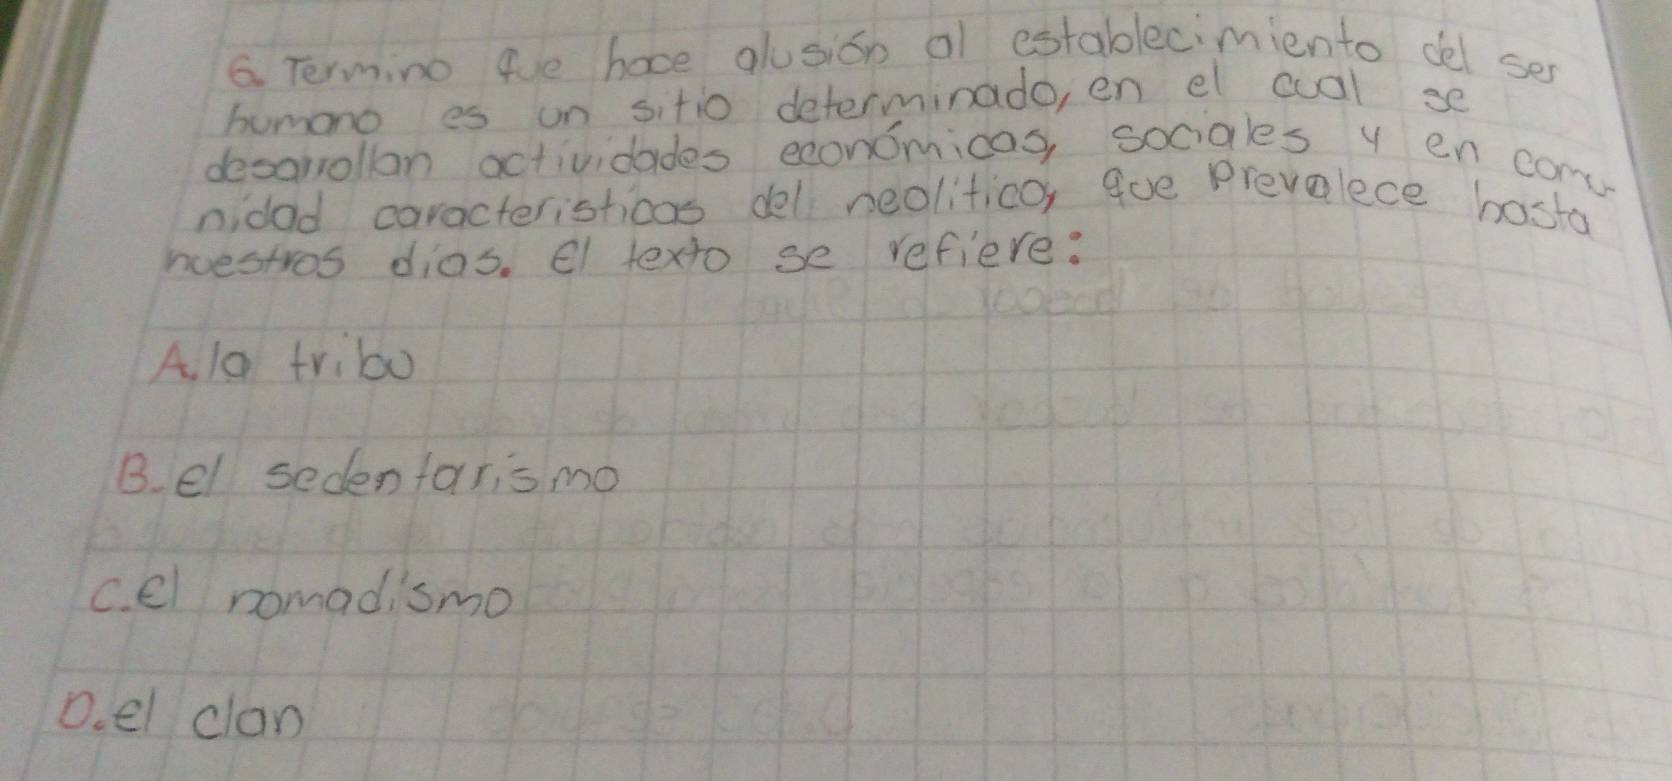 6. Termino que hace alusión al establecimiento del ser
humano es un sitio determinado, en el cual se
desarrollan actividades económicas, sociales y en comu
nidad caracteristicas del neolitico, que prevalece hasta
nuestros dias. El texto se refiere:
A. la tribu
B. el sedentarismo
C. El nomadismo
D. el clan